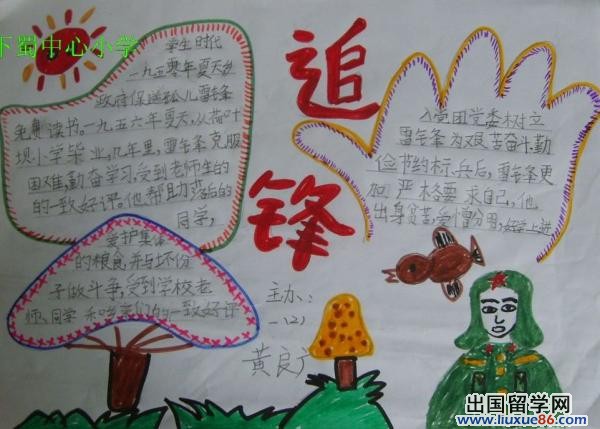 下蜀中心小学
追锋
学生时代
一九五零年夏天乡
政府保送孤儿雷锋
免费读书。一九五六年夏天,从荷叶
坝小学毕业,几年里,雷锋克服
困难,勤奋学习,受到老师生的
的一致好评。他帮助落后的
同学,
爱护集体
的粮食,并与坏份
子做斗争,受到学校老
师、同学和吃亲们的一致好评
入党团党委树立
雷锋为艰苦奋斗,勤
俭节约标兵后,雷锋更
加严格要求自己,他
出身贫苦,爱憎分明,好学上进
主办:
一(2)
黄良
出国留学网
www.liuxue86.com